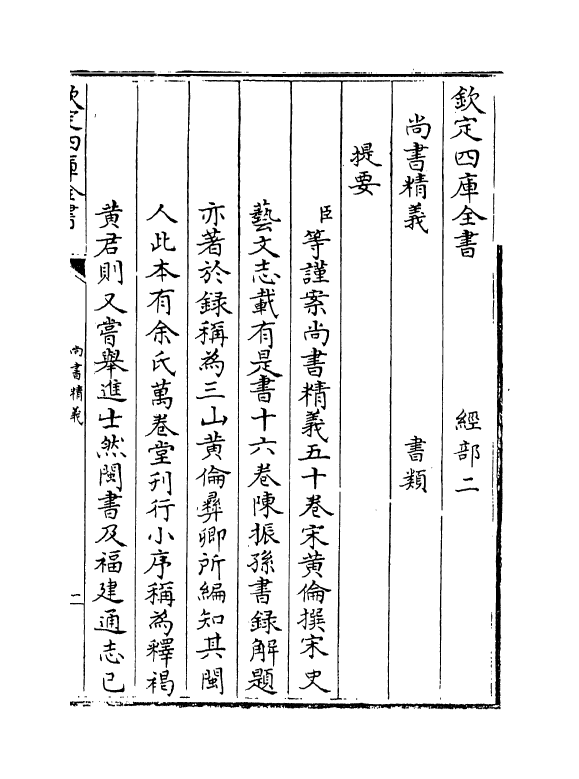 欽定四庫全書　經部二
尚書精義　書類
提要
臣等謹案尚書精義五十卷宋黄倫撰宋史
藝文志載有是書十六卷陳振孫書録解題
亦著於録稱為三山黄倫彝卿所編知其閩
人此本有余氏萬卷堂刋行小序稱為釋褐
黄君則又嘗舉進士然閩書及福建通志已
欽定四庫全書　尚書精義